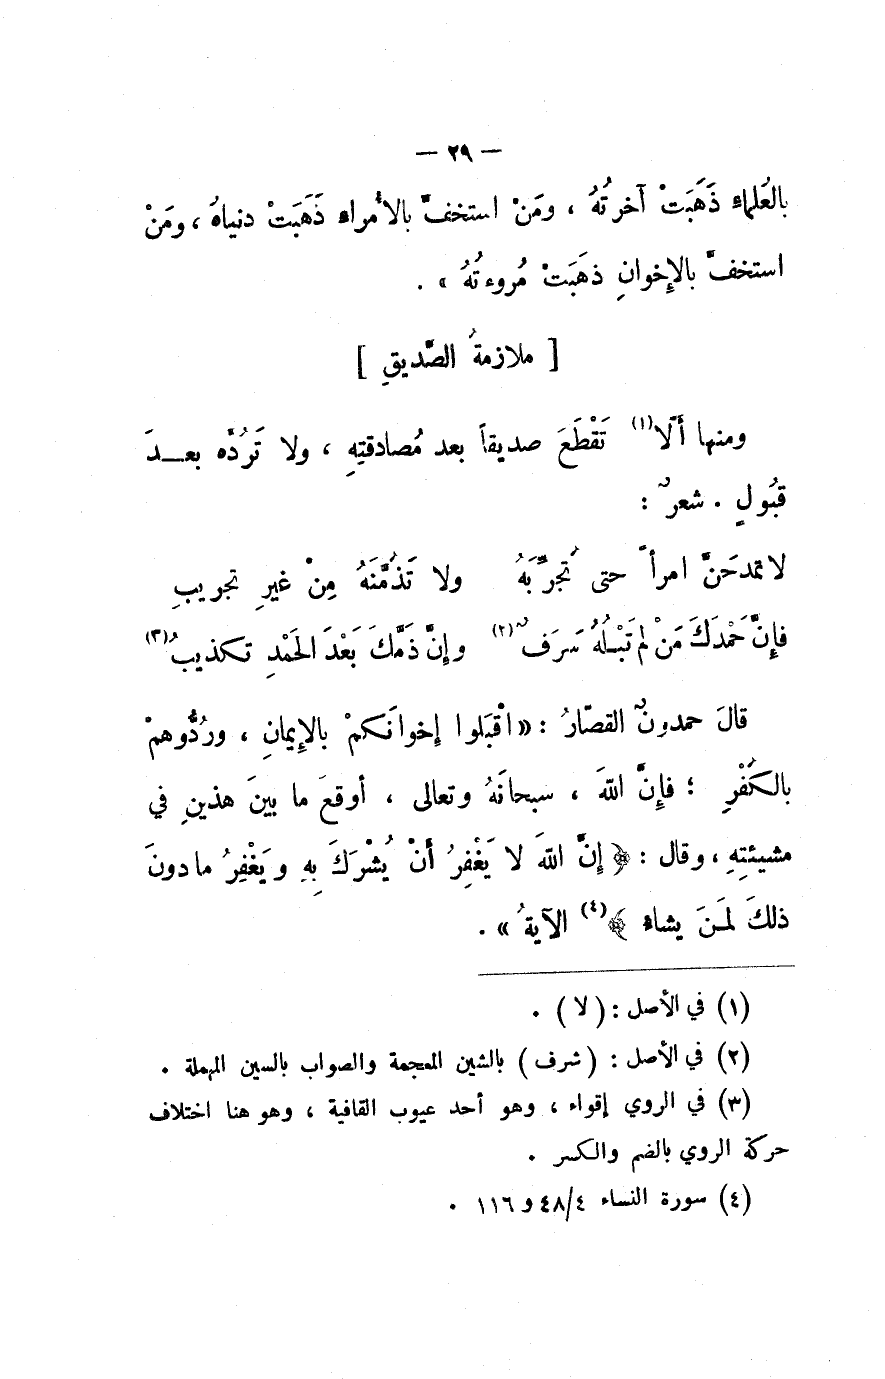 — ٢٩ —
بالعُلماءِ ذَهَبَتْ آخرتُهُ ، ومَنْ استخفَّ بالأُمراءِ ذَهَبَتْ دنياهُ ، ومَنْ
استخفَّ بالإِخوانِ ذهَبَتْ مُروءتُهُ » .
[ ملازمةُ الصَّديقِ ]
ومنها أَلّا(١) تَقْطَعَ صديقاً بعد مُصادقتِهِ ، ولا تَرُدَّه بعـــدَ
قبُولٍ . شعرٌ :
لا تمدحَنَّ امرأً حتى تُجرِّبَهُ ولا تَذُمَّنَهُ مِنْ غيرِ تجريبِ
فإِنَّ حَمْدَكَ مَنْ لم تَبْلُهُ سَرَفٌ(٢) وإِنَّ ذَمَّكَ بَعْدَ الحَمْدِ تكذيبُ(٣)
قالَ حمدونٌ القصّارُ : « اقْبَلوا إِخوانَكمْ بالإِيمانِ ، ورُدُّوهمْ
بالكُفْرِ ؛ فإِنَّ اللهَ ، سبحانَهُ وتعالى ، أوقعَ ما بينَ هذينِ في
مشيئتِهِ ، وقال : ﴿ إِنَّ اللهَ لا يَغْفِرُ أَنْ يُشْرَكَ بِهِ ويَغْفِرُ ما دونَ
ذلكَ لمَـنَ يشاء ﴾(٤) الآيةُ » .
(١) في الأصل : ( لا ) .
(٢) في الأصل : ( شرف ) بالشين المعجمة والصواب بالسين المهملة .
(٣) في الروي إقواء ، وهو أحد عيوب القافية ، وهو هنا اختلاف
حركة الروي بالضم والكسر .
(٤) سورة النساء ٤/٤٨ و ١١٦ .